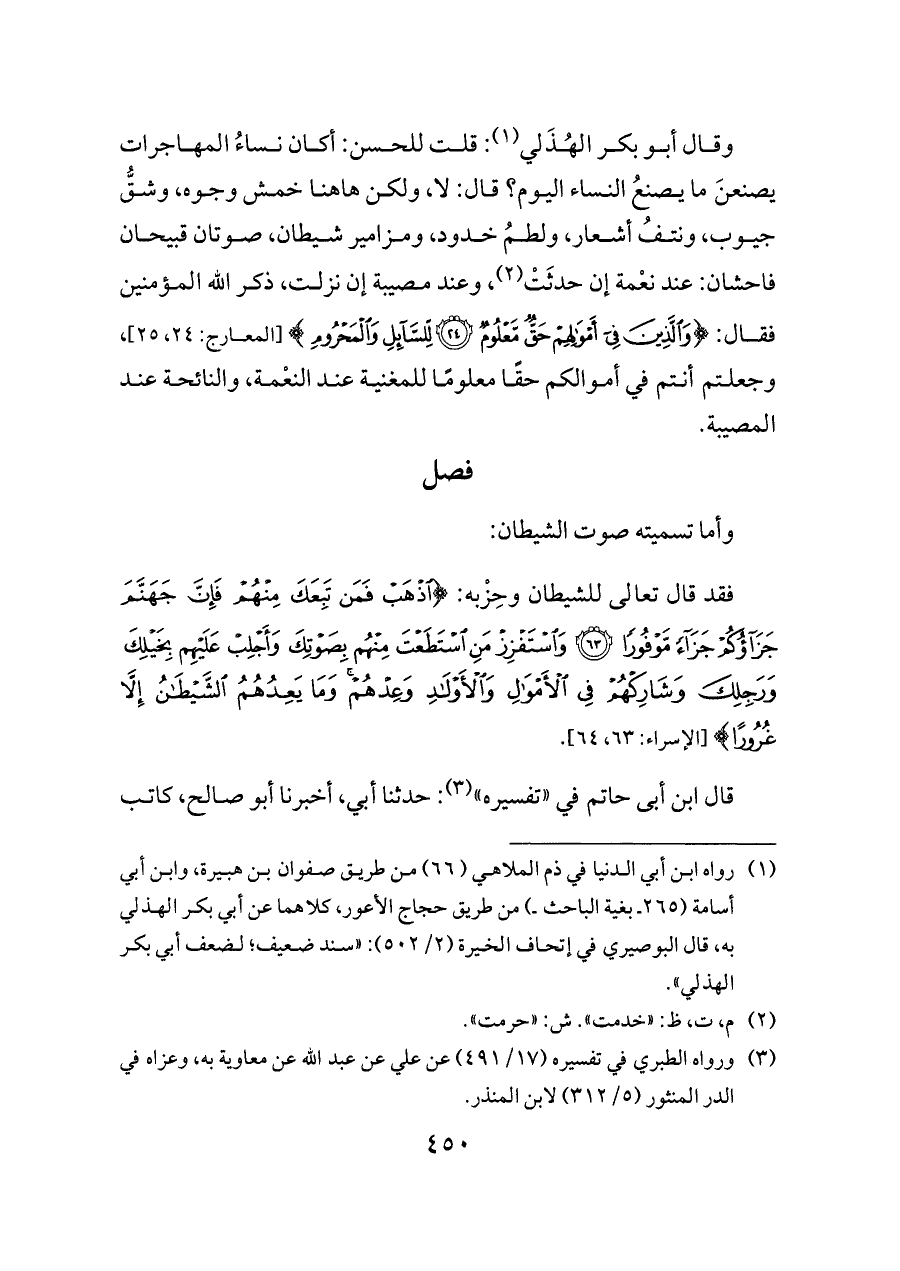 وقال أبو بكر الهُذَلي(١): قلت للحسن: أكان نساءُ المهاجرات
يصنعنَ ما يصنعُ النساء اليوم؟ قال: لا، ولكن هاهنا خمش وجوه، وشقُّ
جيوب، ونتفُ أشعار، ولطمُ خدود، ومزامير شيطان، صوتان قبيحان
فاحشان: عند نعْمة إن حدثَتْ(٢)، وعند مصيبة إن نزلت، ذكر الله المؤمنين
فقال: ﴿وَٱلَّذِينَ فِىٓ أَمْوَٰلِهِمْ حَقٌّ مَّعْلُومٌ ۝٢٤ لِّلسَّآئِلِ وَٱلْمَحْرُومِ﴾ [المعارج: ٢٤، ٢٥]،
وجعلتم أنتم في أموالكم حقًا معلومًا للمغنية عند النعْمة، والنائحة عند
المصيبة.
فصل
وأما تسميته صوت الشيطان:
فقد قال تعالى للشيطان وحِزْبه: ﴿ٱذْهَبْ فَمَن تَبِعَكَ مِنْهُمْ فَإِنَّ جَهَنَّمَ
جَزَآؤُكُمْ جَزَآءً مَّوْفُورًا ۝٦٣ وَٱسْتَفْزِزْ مَنِ ٱسْتَطَعْتَ مِنْهُم بِصَوْتِكَ وَأَجْلِبْ عَلَيْهِم بِخَيْلِكَ
وَرَجِلِكَ وَشَارِكْهُمْ فِى ٱلْأَمْوَٰلِ وَٱلْأَوْلَٰدِ وَعِدْهُمْ ۚ وَمَا يَعِدُهُمُ ٱلشَّيْطَٰنُ إِلَّا
غُرُورًا﴾ [الإسراء: ٦٣، ٦٤].
قال ابن أبى حاتم في «تفسيره»(٣): حدثنا أبي، أخبرنا أبو صالح، كاتب
(١) رواه ابن أبي الدنيا في ذم الملاهي (٦٦) من طريق صفوان بن هبيرة، وابن أبي
أسامة (٢٦٥ـ بغية الباحث ـ) من طريق حجاج الأعور، كلاهما عن أبي بكر الهذلي
به، قال البوصيري في إتحاف الخيرة (٢/ ٥٠٢): «سند ضعيف؛ لضعف أبي بكر
الهذلي».
(٢) م، ت، ظ: «خدمت». ش: «حرمت».
(٣) ورواه الطبري في تفسيره (١٧/ ٤٩١) عن علي عن عبد الله عن معاوية به، وعزاه في
الدر المنثور (٥/ ٣١٢) لابن المنذر.
٤٥٠